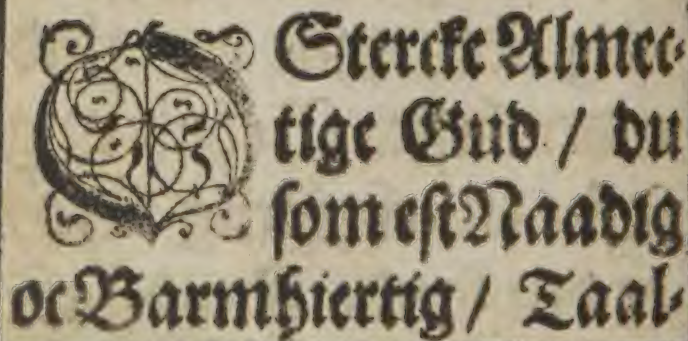 O Stercke Almec⸗
tige Gud / du
som est Naadig
oc Barmhiertig / Taal⸗